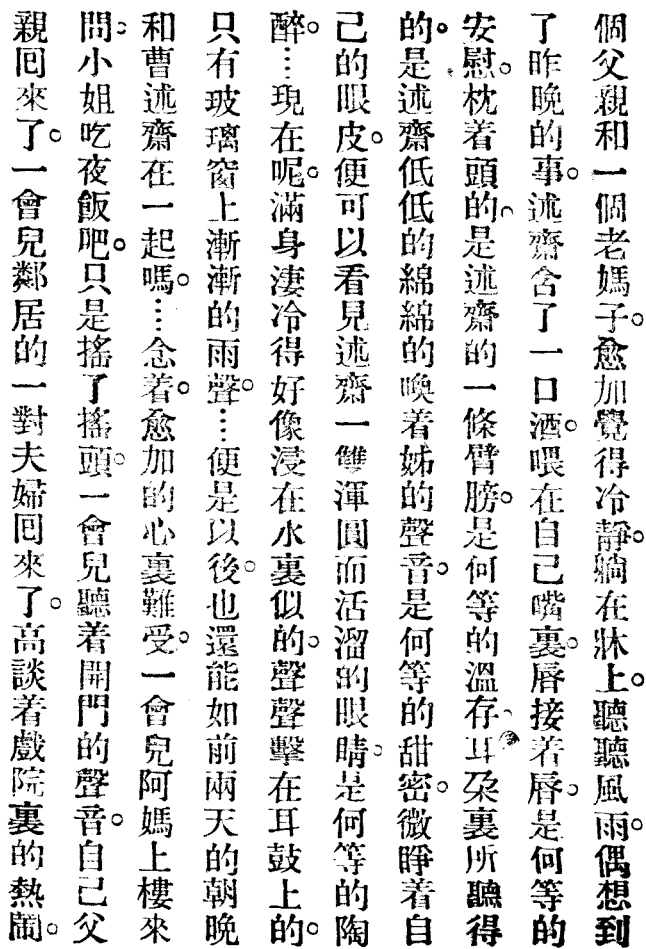 個父親和一個老媽子。愈加覺得冷靜。躺在牀上。聽聽風雨。偶想到
了昨晚的事。述齋含了一口酒。喂在自己嘴裏。唇接着唇。是何等的
安慰。枕着頭的。是述齋的一條臂膀。是何等的溫存。耳朶裏所聽得
的。是述齋低低的綿綿的喚着姊的聲音。是何等的甜密。微睜着自
己的眼皮。便可以看見述齋一雙渾圓而活溜的眼睛。是何等的陶
醉。…現在呢。滿身淒冷得好像浸在水裏似的。聲聲擊在耳鼓上的。
只有玻璃窗上漸漸的雨聲。…便是以後。也還能如前兩天的朝晚
和曹述齋在一起嗎。…念着。愈加的心裏難受。一會兒阿媽上樓來
問。小姐吃夜飯吧。只是搖了搖頭。一會兒聽着開門的聲音。自己父
親囘來了。一會兒鄰居的一對夫婦囘來了。高談着戲院裏的熱鬧。